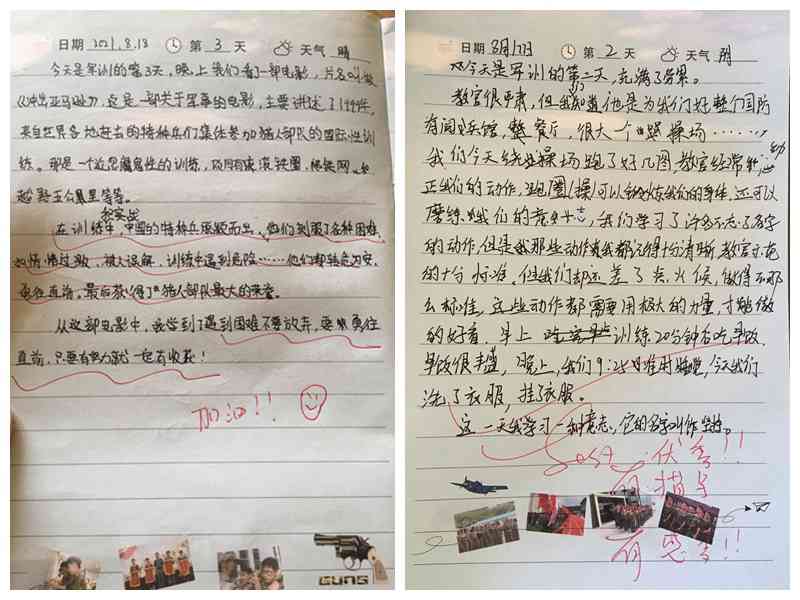 日期 2021.8.18 第 3 天 天气 晴
今天是军训的第3天,晚上我们看了一部电影,片名叫做
《冲出亚马逊》,这是一部关于军事的电影,主要讲述了1999年,
来自世界各地赶去的特种兵们集体参加猎人部队的国际性训
练。那是一个近忍魔鬼性的训练,滚铁圈,爬铁网、
越野五公里等等。
和实战
在训练中,中国的特种兵脱颖而出,他们制服了各种困难,
训练中遇到危险……他们却转危为安,
勇往直前。最后获得了猎人部队最大的荣誉。
从这部电影中,我学到了遇到困难不要放弃,要勇往
直前,只要有努力就一定有收获!
加油!!
GUNS
日期 8月17日 第 2 天 天气 阴
今天是军训的第二天,充满了劳累。
教官很严肃,但我知道,他是为我们好,整个国防
有阅兵馆,餐厅,很大一个操场……,
我们今天绕操场跑了好几圈,教官经常纠
正我们的动作,跑圈(操)可以锻炼我们的身体,还可以
磨练我们的意志,我们学习了许多
的动作,但是那些动作我都记得十分清晰,教官示范
的十分标准。但我们却还差了点火候,做得不那
么标准,这些动作都需要用极大的力量,才能做
的好看。早上训练20分钟后吃早饭,
早饭很丰盛,晚上,我们9:25准时睡觉,今天我们
洗了衣服,挂了衣服。
这一天我学习一种意志,它的名字叫作坚持。